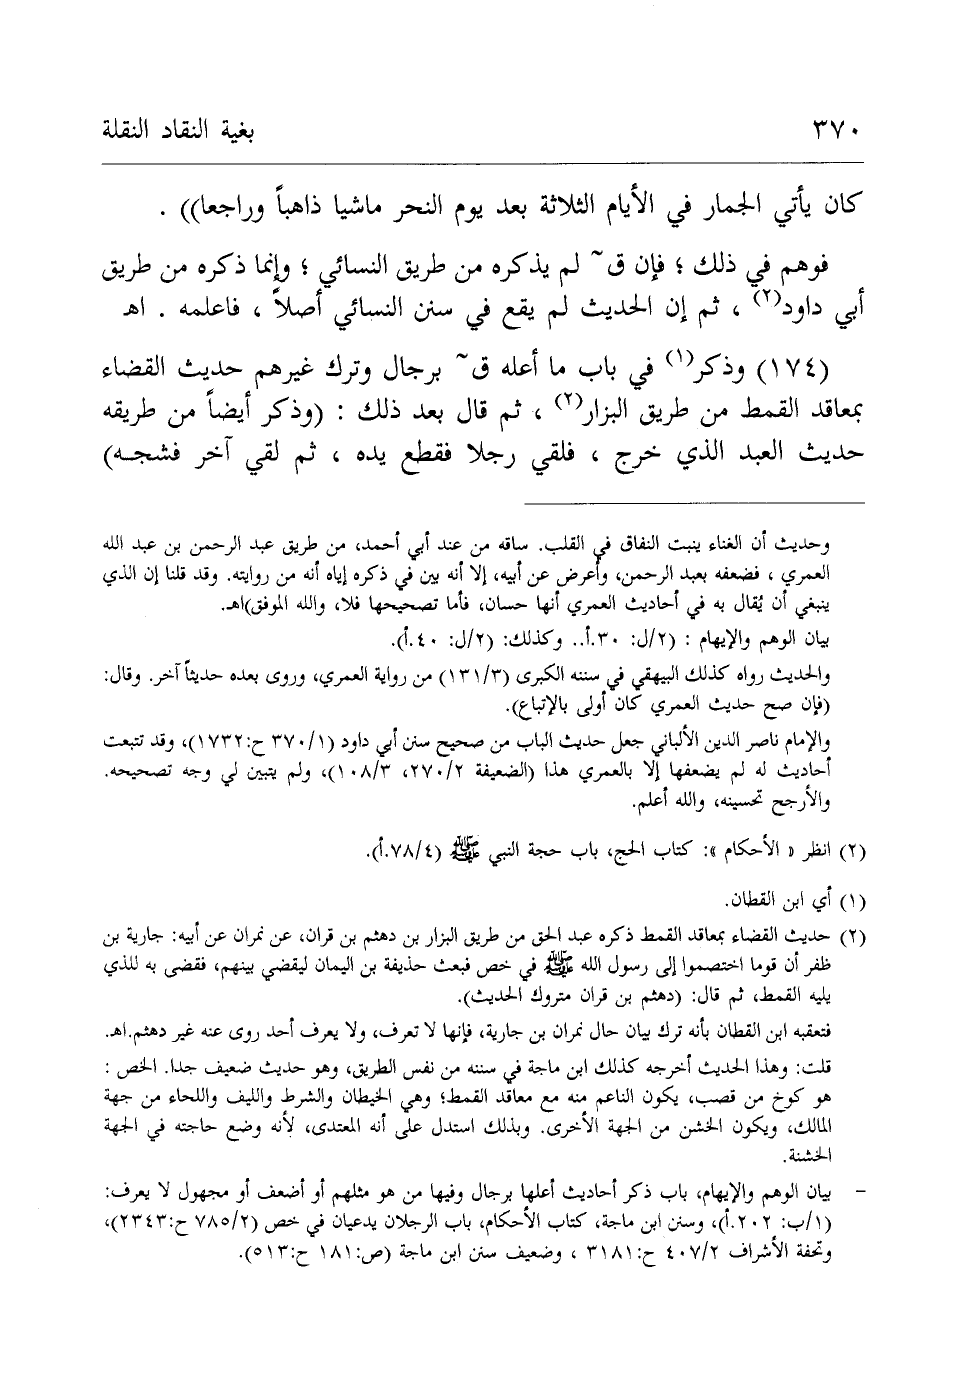 ٣٧٠ بغية النقاد النقلة
كان يأتي الجمار في الأيام الثلاثة بعد يوم النحر ماشيا ذاهباً وراجعا)) .
فوهم في ذلك ؛ فإن ق~ لم يذكره من طريق النسائي ؛ وإنما ذكره من طريق
أبي داود(٢) ، ثم إن الحديث لم يقع في سنن النسائي أصلاً ، فاعلمه . اهـ
(١٧٤) وذكر(١) في باب ما أعله ق~ برجال وترك غيرهم حديث القضاء
بمعاقد القمط من طريق البزار(٢) ، ثم قال بعد ذلك : (وذكر أيضاً من طريقه
حديث العبد الذي خرج ، فلقي رجلا فقطع يده ، ثم لقي آخر فشجـه)
وحديث أن الغناء ينبت النفاق في القلب. ساقه من عند أبي أحمد، من طريق عبد الرحمن بن عبد الله
العمري ، فضعفه بعبد الرحمن، وأعرض عن أبيه، إلا أنه بين في ذكره إياه أنه من روايته. وقد قلنا إن الذي
ينبغي أن يُقال به في أحاديث العمري أنها حسان، فأما تصحيحها فلا، والله الموفق)اهـ.
بيان الوهم والإيهام : (٢/ل: ٣٠.أ.. وكذلك: (٢/ل: ٤٠.أ).
والحديث رواه كذلك البيهقي في سننه الكبرى (١٣١/٣) من رواية العمري، وروى بعده حديثاً آخر. وقال:
(فإن صح حديث العمري كان أولى بالإتباع).
والإمام ناصر الدين الألباني جعل حديث الباب من صحيح سنن أبي داود (٣٧٠/١ ح:١٧٣٢)، وقد تتبعت
أحاديث له لم يضعفها إلا بالعمري هذا (الضعيفة ٢٧٠/٢، ١٠٨/٣)، ولم يتبين لي وجه تصحيحه.
والأرجح تحسينه، والله أعلم.
(٢) انظر « الأحكام »: كتاب الحج، باب حجة النبي ﷺ (٧٨/٤.أ).
(١) أي ابن القطان.
(٢) حديث القضاء بمعاقد القمط ذكره عبد الحق من طريق البزار بن دهثم بن قران، عن نمران عن أبيه: جارية بن
ظفر أن قوما اختصموا إلى رسول الله ﷺ في خص فبعث حذيفة بن اليمان ليقضي بينهم، فقضى به للذي
يليه القمط، ثم قال: (دهثم بن قران متروك الحديث).
فتعقبه ابن القطان بأنه ترك بيان حال نمران بن جارية، فإنها لا تعرف، ولا يعرف أحد روى عنه غير دهثم.اهـ.
قلت: وهذا الحديث أخرجه كذلك ابن ماجة في سننه من نفس الطريق، وهو حديث ضعيف جدا. الخص :
هو كوخ من قصب، يكون الناعم منه مع معاقد القمط؛ وهي الخيطان والشرط والليف واللحاء من جهة
المالك، ويكون الخشن من الجهة الأخرى. وبذلك استدل على أنه المعتدى، لأنه وضع حاجته في الجهة
الخشنة.
– بيان الوهم والإيهام، باب ذكر أحاديث أعلها برجال وفيها من هو مثلهم أو أضعف أو مجهول لا يعرف:
(١/ب: ٢٠٢.أ)، وسنن ابن ماجة، كتاب الأحكام، باب الرجلان يدعيان في خص (٧٨٥/٢ ح:٢٣٤٣)،
وتحفة الأشراف ٤٠٧/٢ ح:٣١٨١ ، وضعيف سنن ابن ماجة (ص:١٨١ ح:٥١٣).